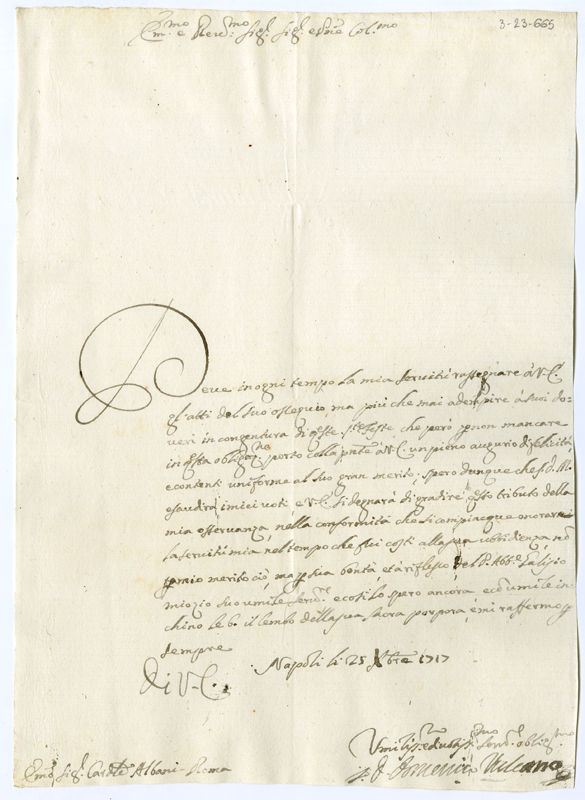 3-23-665
Em.mo e Rev.mo Sig.r Sig.r e Pñe Col.mo
Deve in ogni tempo la mia servitù rassegnare à V. E.
gl'atti del suo ossequio, ma più che mai adempire à suoi do-
veri in congentura di queste S.te Feste, che però per non mancare
in questa obligaz.ne porto colla pñte à V. E. un pieno augurio di felicità,
e contenti uniforme al suo gran merito; spero dunque che S. D. M.
esaudirà i miei voti e V. E. si degnarà di gradire questo tributo della
mia osservanza, nella conformità che si compiacque onorarmi
la servitù mia nel tempo che fui costì alla sua ubidienza, non
per mio merito ciò, ma per sua bontà et à riflesso del P. Abb.e
mio zio suo umile serv.re e così lo spero ancora, e con umile in-
chino le b. il lembo della sua sacra porpora, e mi raffermo per
sempre
Di V. E.
Napoli li 25 Xbre 1717
Umiliss.mo e ubbidiss.mo Serv.re oblig.mo
D. Domenico Vulcano
Em.o Sig.r Card.le Albani Roma